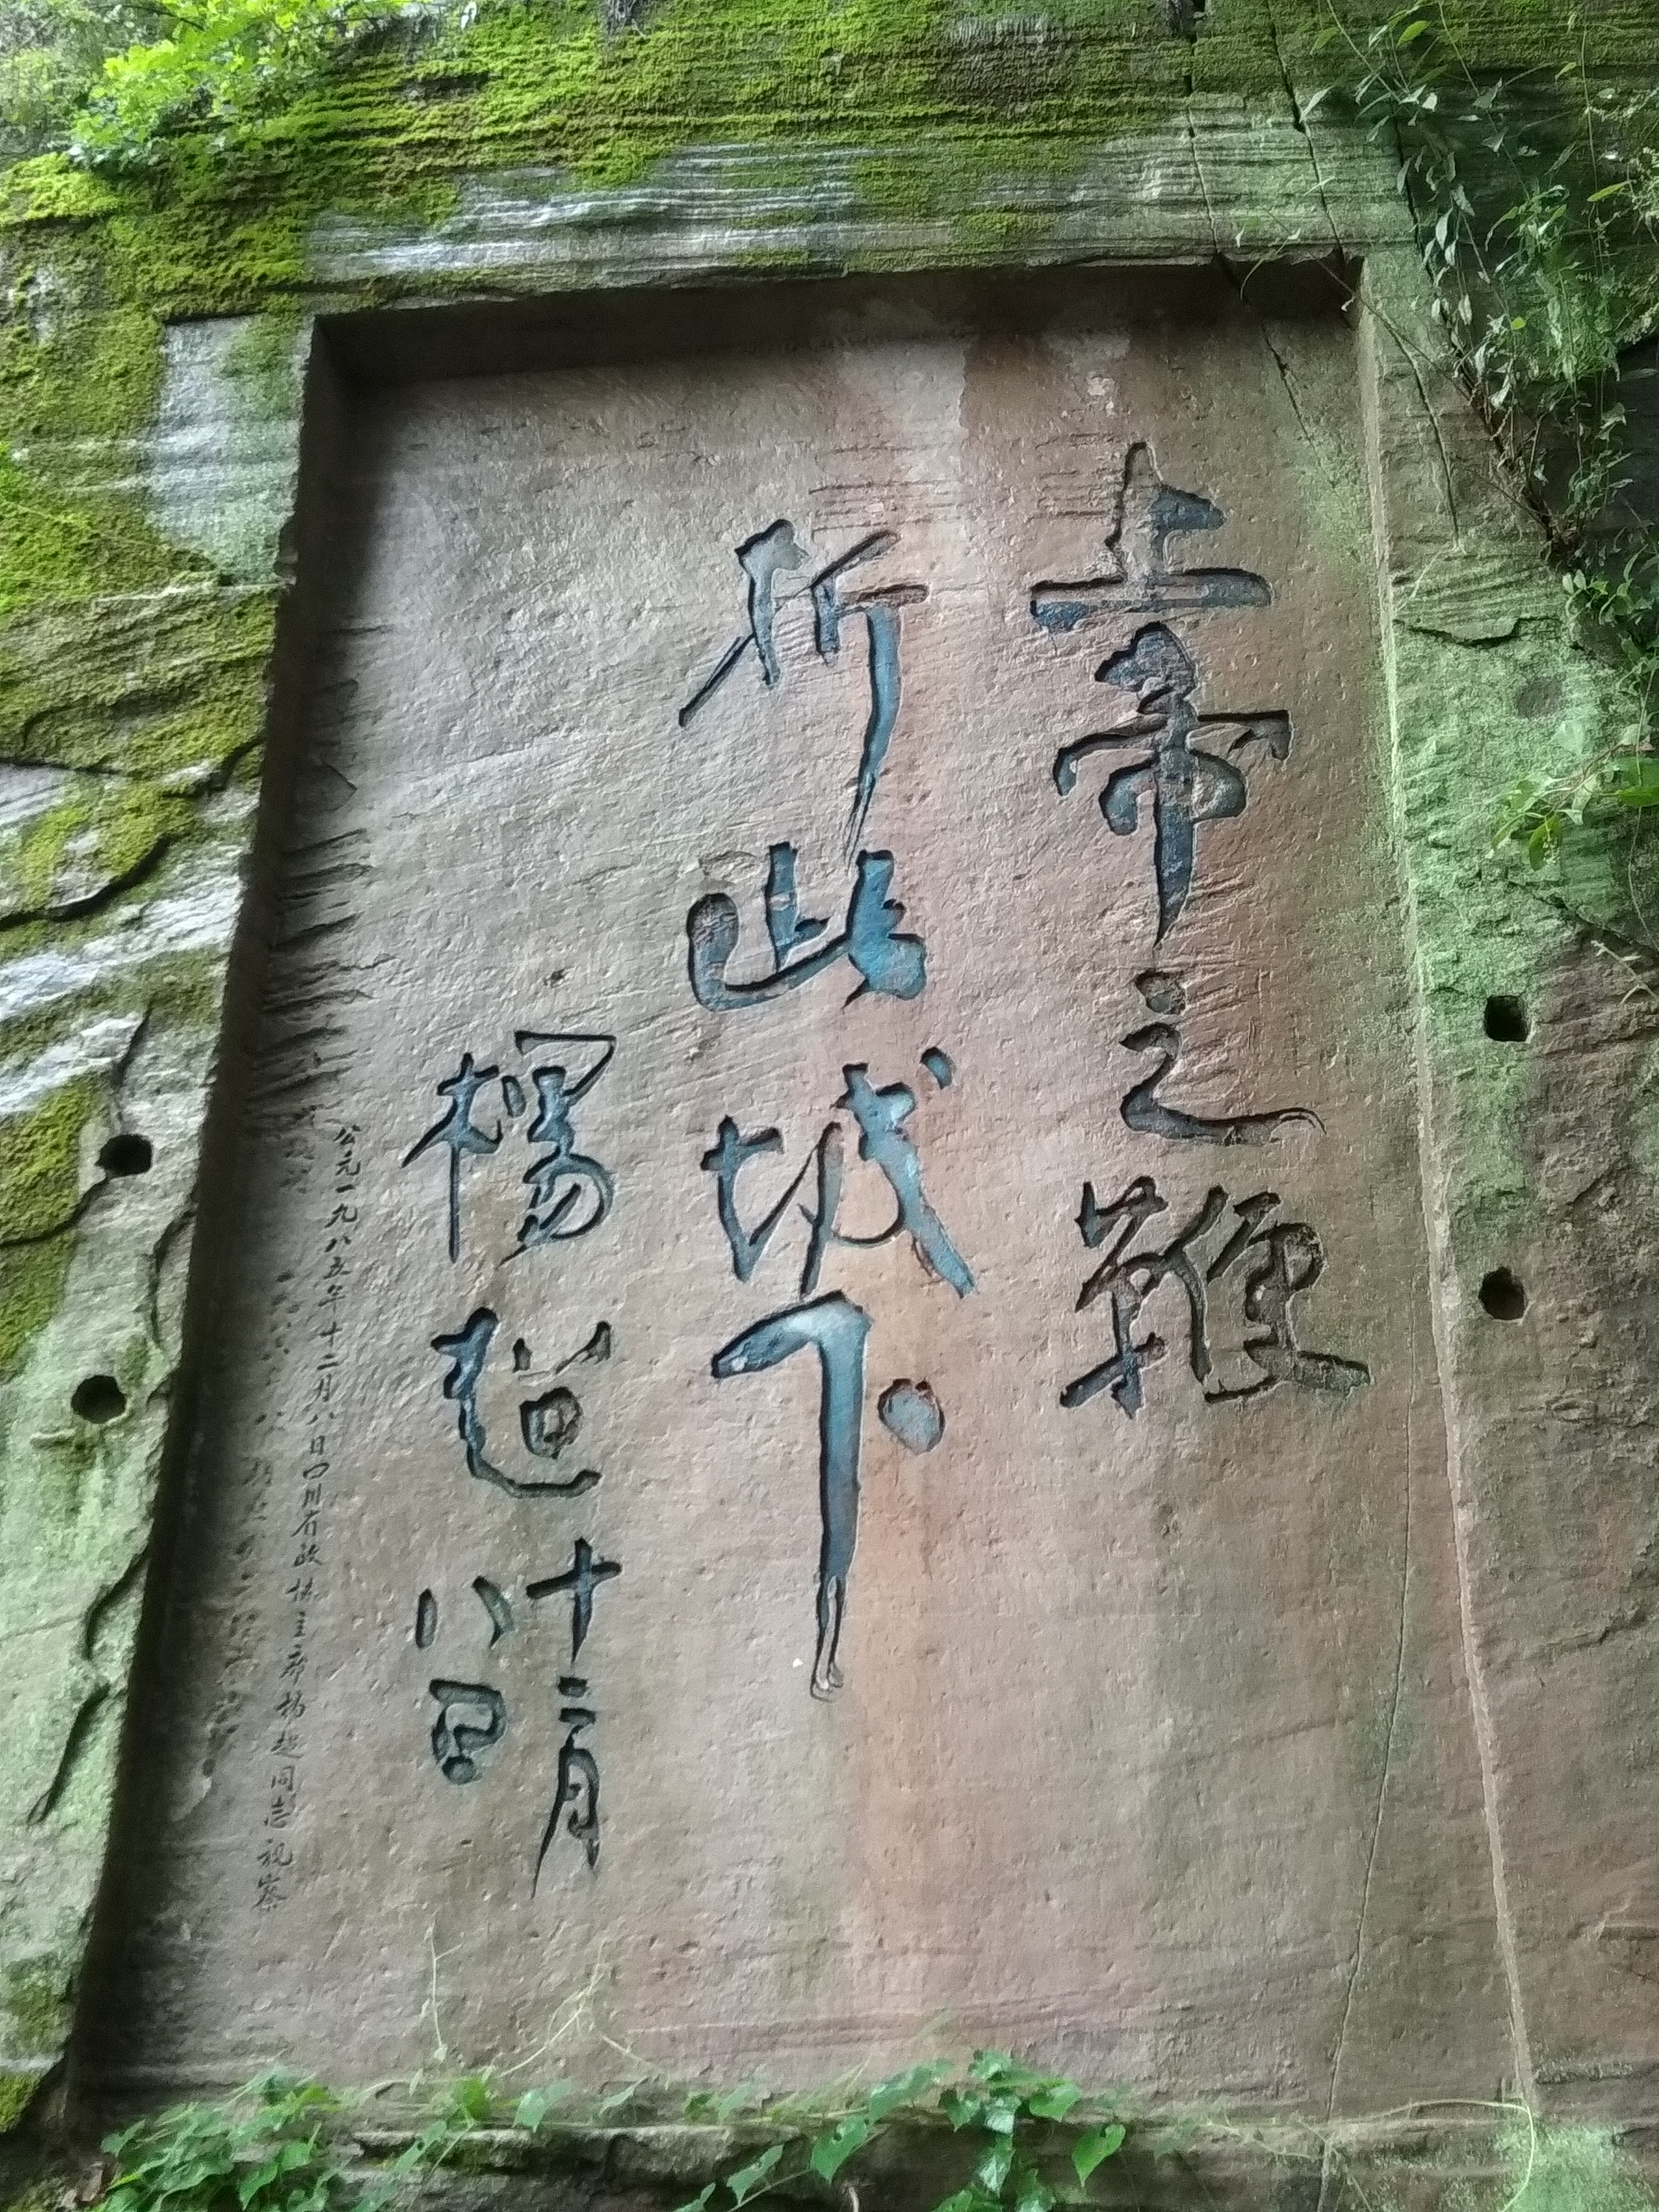 上帝之鞭
折此城下。
楊超 十二月
八日
公元一九八五年十二月八日四川省政协主席杨超同志视察